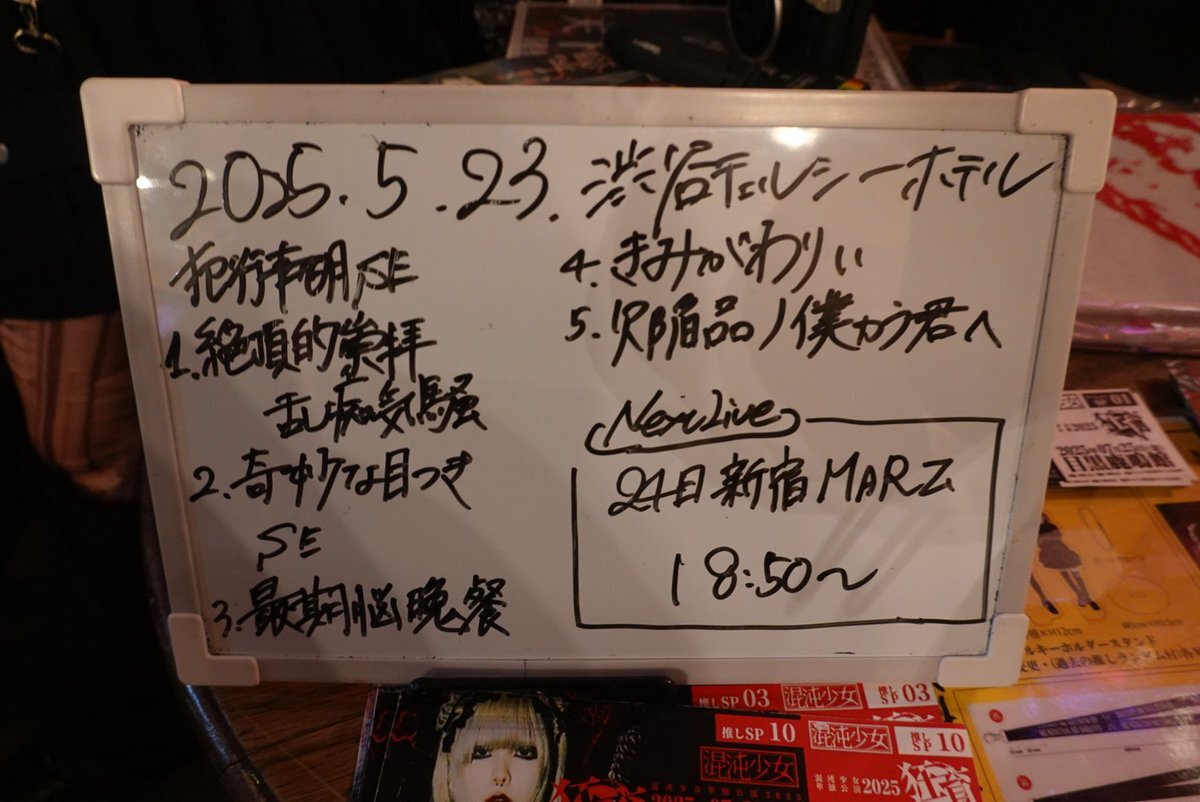 2025.5.23. 渋谷チェルシーホテル
犯行声明SE
1.絶頂的崇拝
乱痴気騒
2.奇妙な目つき
SE
3.最期脳晩餐
4.きみがわりぃ
5.欠陥品ノ僕カラ君へ
Next Live
24日新宿MARZ
18:50～
推しSP 03
混沌少女
推しSP 03
推しSP 10
混沌少女
推しSP 10
混沌少女
混沌少女
単独公演2025
×H12cm
ルキーホルダースタンド